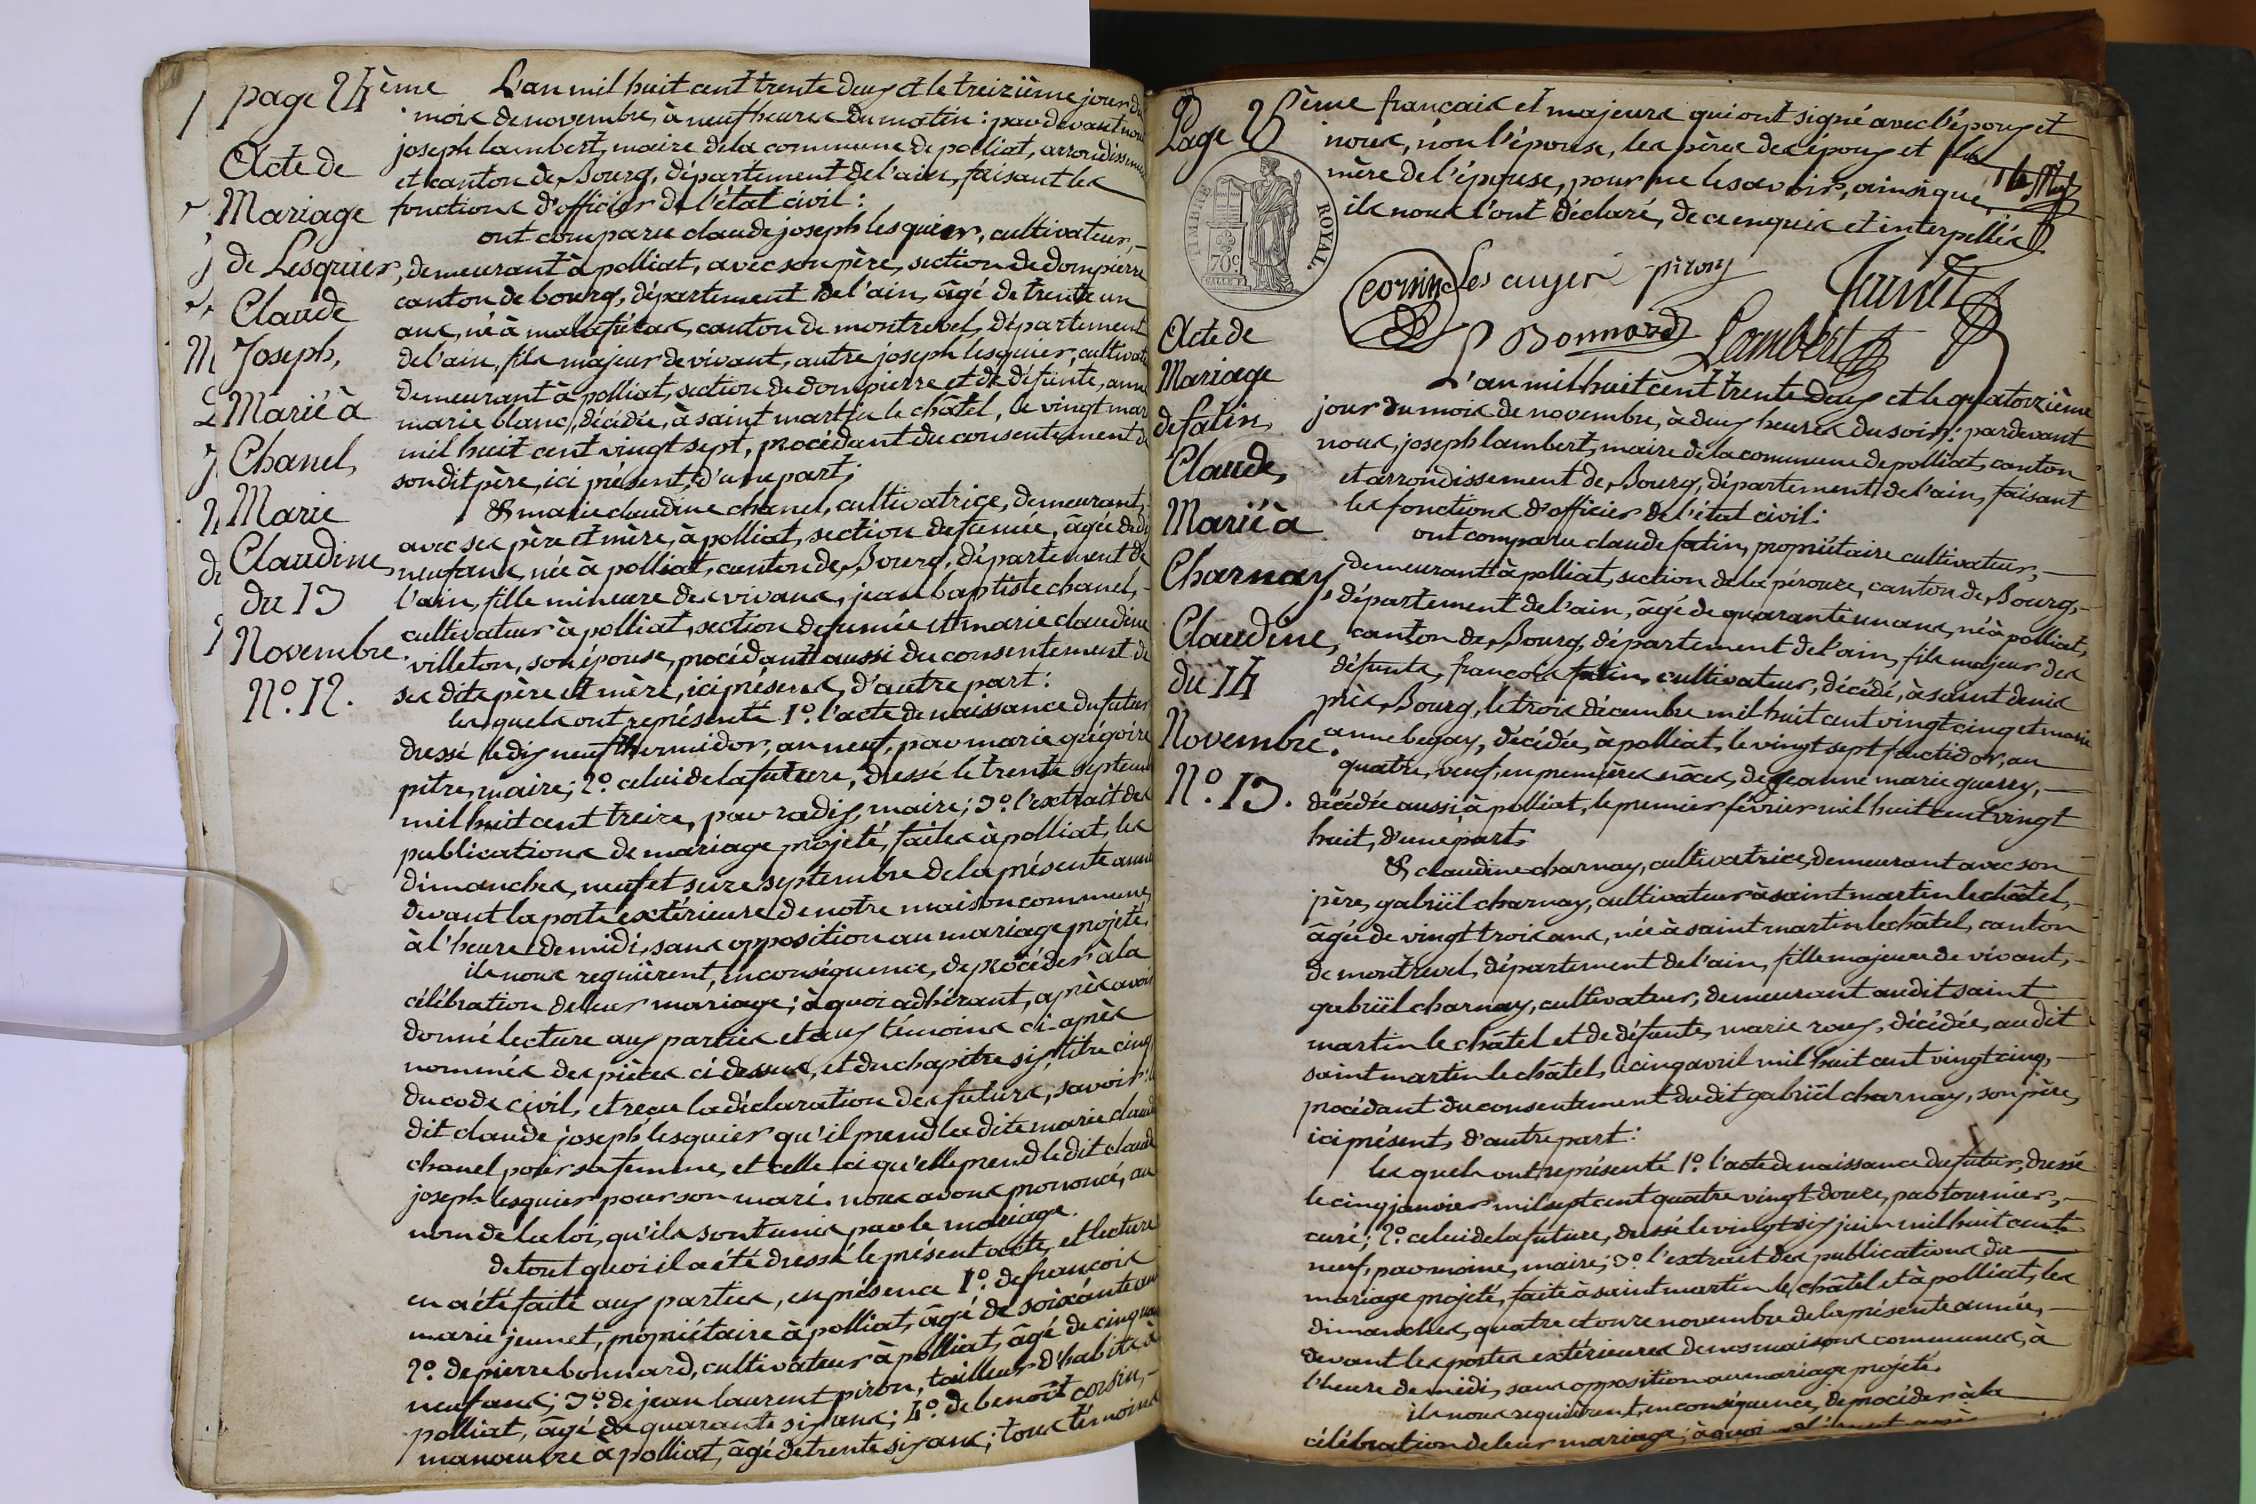 page 24ème
Acte de
Mariage
de Lesquier,
Claude
Joseph,
Marié à
Chanel,
Marie
Claudine,
du 13
Novembre.
N.º 12.
L'an mil huit cent trente deux et le treizième jour du
mois de novembre, à neuf heures du matin : par devant nous
joseph lambert, maire de la commune de polliat, arrondissement
et canton de Bourg, département de l'ain, faisant les
fonctions d'officier de l'état civil :
ont comparu claude joseph lesquier, cultivateur,
demeurant à polliat, avec son père, section de dompierre
canton de bourg, département de l'ain, âgé de trente un
ans, né à malafretaz, canton de montrevel, département
de l'ain, fils majeur de vivant, autre joseph lesquier, cultivateur
demeurant à polliat, section de dompierre et de défunte, anne
marie blanc, décédée, à saint martin le châtel, le vingt mars
mil huit cent vingt sept, procédant du consentement de
son dit père, ici présent, d'une part;
& marie claudine chanel, cultivatrice, demeurant,
avec ses père et mère, à polliat, section de fumée, âgée de dix
neuf ans, née à polliat, canton de Bourg, département de
l'ain, fille mineure des vivans, jean baptiste chanel,
cultivateur à polliat, section de fumée et marie claudine
villeton, son épouse, procédant aussi du consentement de
ses dits père et mère, ici présens, d'autre part :
les quels ont représenté 1.º l'acte de naissance du futur
dressé le dix neuf thermidor, an neuf, par marie grégoire
pitre, maire; 2.º celui de la future, dressé le trente septembre
mil huit cent treize, par radix, maire; 3.º l'extrait des
publications de mariage projeté, faites à polliat, les
dimanches, neuf et seize septembre de la présente année
devant la porte extérieure de notre maison commune,
à l'heure de midi, sans opposition au mariage projeté.
ils nous requièrent, en conséquence, de procéder à la
célébration de leur mariage; à quoi adhérant, après avoir
donné lecture aux parties et aux témoins ci-après
nommés des pièces ci dessus, et du chapitre six, titre cinq
du code civil, et reçu la déclaration des futurs, savoir :
dit claude joseph lesquier qu'il prend la dite marie claudine
chanel pour sa femme, et celle-ci qu'elle prend le dit claude
joseph lesquier pour son mari. nous avons prononcé, au
nom de la loi, qu'ils sont unis par le mariage.
de tout quoi il a été dressé le présent acte, et lecture
en a été faite aux parties, en présence 1.º de françois
marie jeunet, propriétaire à polliat, âgé de soixante ans
2.º de pierre bonnard, cultivateur à polliat, âgé de cinquante
neuf ans; 3.º de jean laurent piron, tailleur d'habits à
polliat, âgé de quarante six ans; 4.º de benoît corsin,
manoeuvre à polliat, âgé de trente six ans; tous témoins
Page 25ème
français et majeurs qui ont signé avec l'époux et
nous, non l'épouse, les pères des époux et
mère de l'épouse, pour ne le savoir, ainsi que
ils nous l'ont déclaré, de ce enquis et interpellés.
TIMBRE ROYAL.
70 c
corsin Les quyer piron
Jeunet
P Bonnard Lambert
Acte de
Mariage
de fatin,
Claude,
Marié à
Charnay,
Claudine,
du 14
Novembre.
N.º 13.
L'an mil huit cent trente deux et le quatorzième
jour du mois de novembre, à deux heures du soir : pardevant
nous, joseph lambert, maire de la commune de polliat, canton
et arrondissement de Bourg, département de l'ain, faisant
les fonctions d'officier de l'état civil :
ont comparu claude fatin, propriétaire cultivateur,
demeurant à polliat, section de la pérouze, canton de Bourg,
département de l'ain, âgé de quarante un ans, né à polliat,
canton de Bourg, département de l'ain, fils majeur des
défunts, françois fatin, cultivateur, décédé, à saint denis
près Bourg, le trois décembre mil huit cent vingt cinq et marie
anne begay, décédée, à polliat, le vingt sept fructidor, an
quatre, veuf, en premières nôces, de jeanne marie guerry,
décédée aussi, à polliat, le premier février mil huit cent vingt
huit, d'une part;
& claudine charnay, cultivatrice, demeurant avec son
père, gabriël charnay, cultivateur à saint martin le châtel,
âgée de vingt trois ans, née à saint martin le châtel, canton
de montrevel, département de l'ain, fille majeure de vivant,
gabriël charnay, cultivateur, demeurant au dit saint
martin le châtel et de défunte, marie roux, décédée, au dit
saint martin le châtel, le cinq avril mil huit cent vingt cinq,
procédant du consentement du dit gabriël charnay, son père,
ici présent, d'autre part :
les quels ont représenté 1.º l'acte de naissance du futur, dressé
le cinq janvier mil sept cent quatre vingt douze, par tournier,
curé; 2.º celui de la future, dressé le vingt six juin mil huit cent
neuf, par moine, maire; 3.º l'extrait des publications du
mariage projeté, faite à saint martin le châtel et à polliat, les
dimanches, quatre et onze novembre de la présente année,
devant les portes extérieures de nos maisons communes, à
l'heure de midi, sans opposition au mariage projeté.
ils nous requièrent, en conséquence, de procéder à la
célébration de leur mariage; à quoi